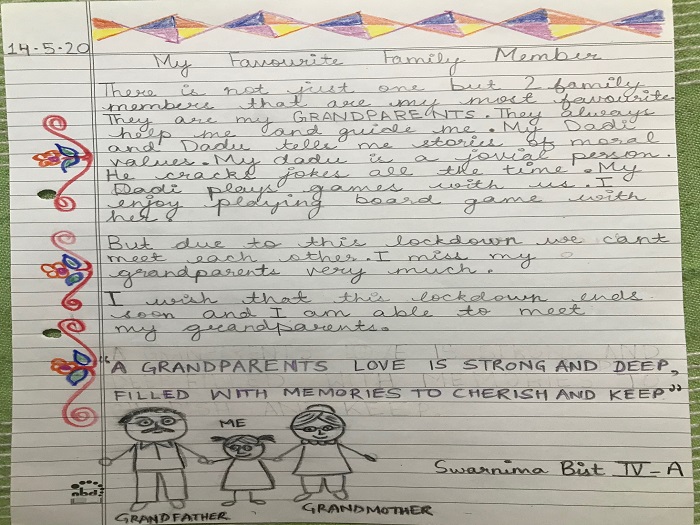 14-5-20
My Favourite Family Member
There is not just one but 2 family
members that are my most favourite
They are my GRANDPARENTS. They always
help me and guide me. My Dadi
and Dadu tells me stories of moral
values. My dadu is a jovial person.
He cracks jokes all the time. My
Dadi plays games with us. I
enjoy playing board game with
her.
But due to this lockdown we cant
meet each other. I miss my
grandparents very much.
I wish that this lockdown ends
soon and I am able to meet
my grandparents.
"A GRANDPARENTS LOVE IS STRONG AND DEEP,
FILLED WITH MEMORIES TO CHERISH AND KEEP"
ME
Swarnima Bist IV-A
nbd
GRANDFATHER
GRANDMOTHER